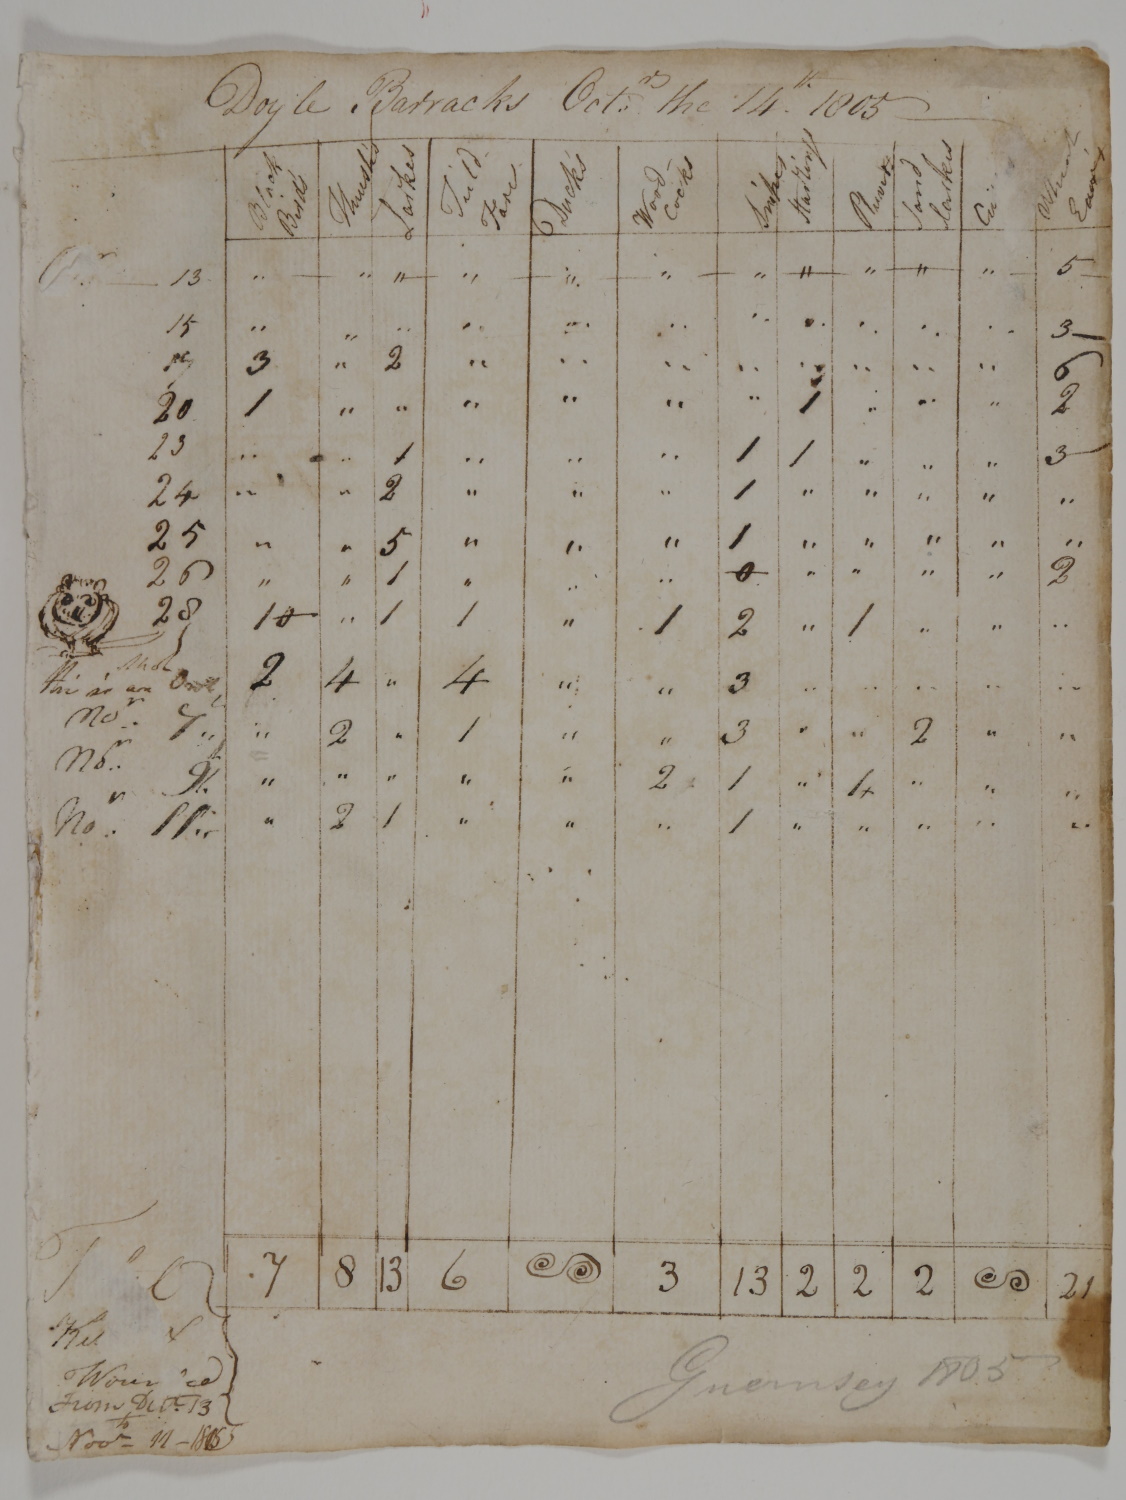 Doyle Barracks Octr the 14th 1805
Black Birds Thrushes Larkes Field Fare Ducks Wood Cocks Snipes Starling Sand Larkes
13 " " " " " " " " " " " 5
15 " " " " " " " " " " " 3
3 " 2 " " " " " " " " 6
20 1 " " " " " " 1 " " " 2
23 " " 1 " " " 1 1 " " " 3
24 " " 2 " " " 1 " " " " "
25 " " 5 " " " 1 " " " " "
26 " " 1 " " " 0 " " " " 2
28 10 " 1 1 " 1 2 " 1 " " "
shot
2 4 " 4 " " 3 " " " " "
Nor. 7 " 2 " 1 " " 3 " " 2 " "
Nor. 9 " " " " " 2 1 " 4 " " "
Nor. 11 " 2 1 " " " 1 " " " " "
7 8 13 6 3 13 2 2 2 21
Kil &
Woun ed
From Octr 13
to
Novr 11 - 1805
Guernsey 1805